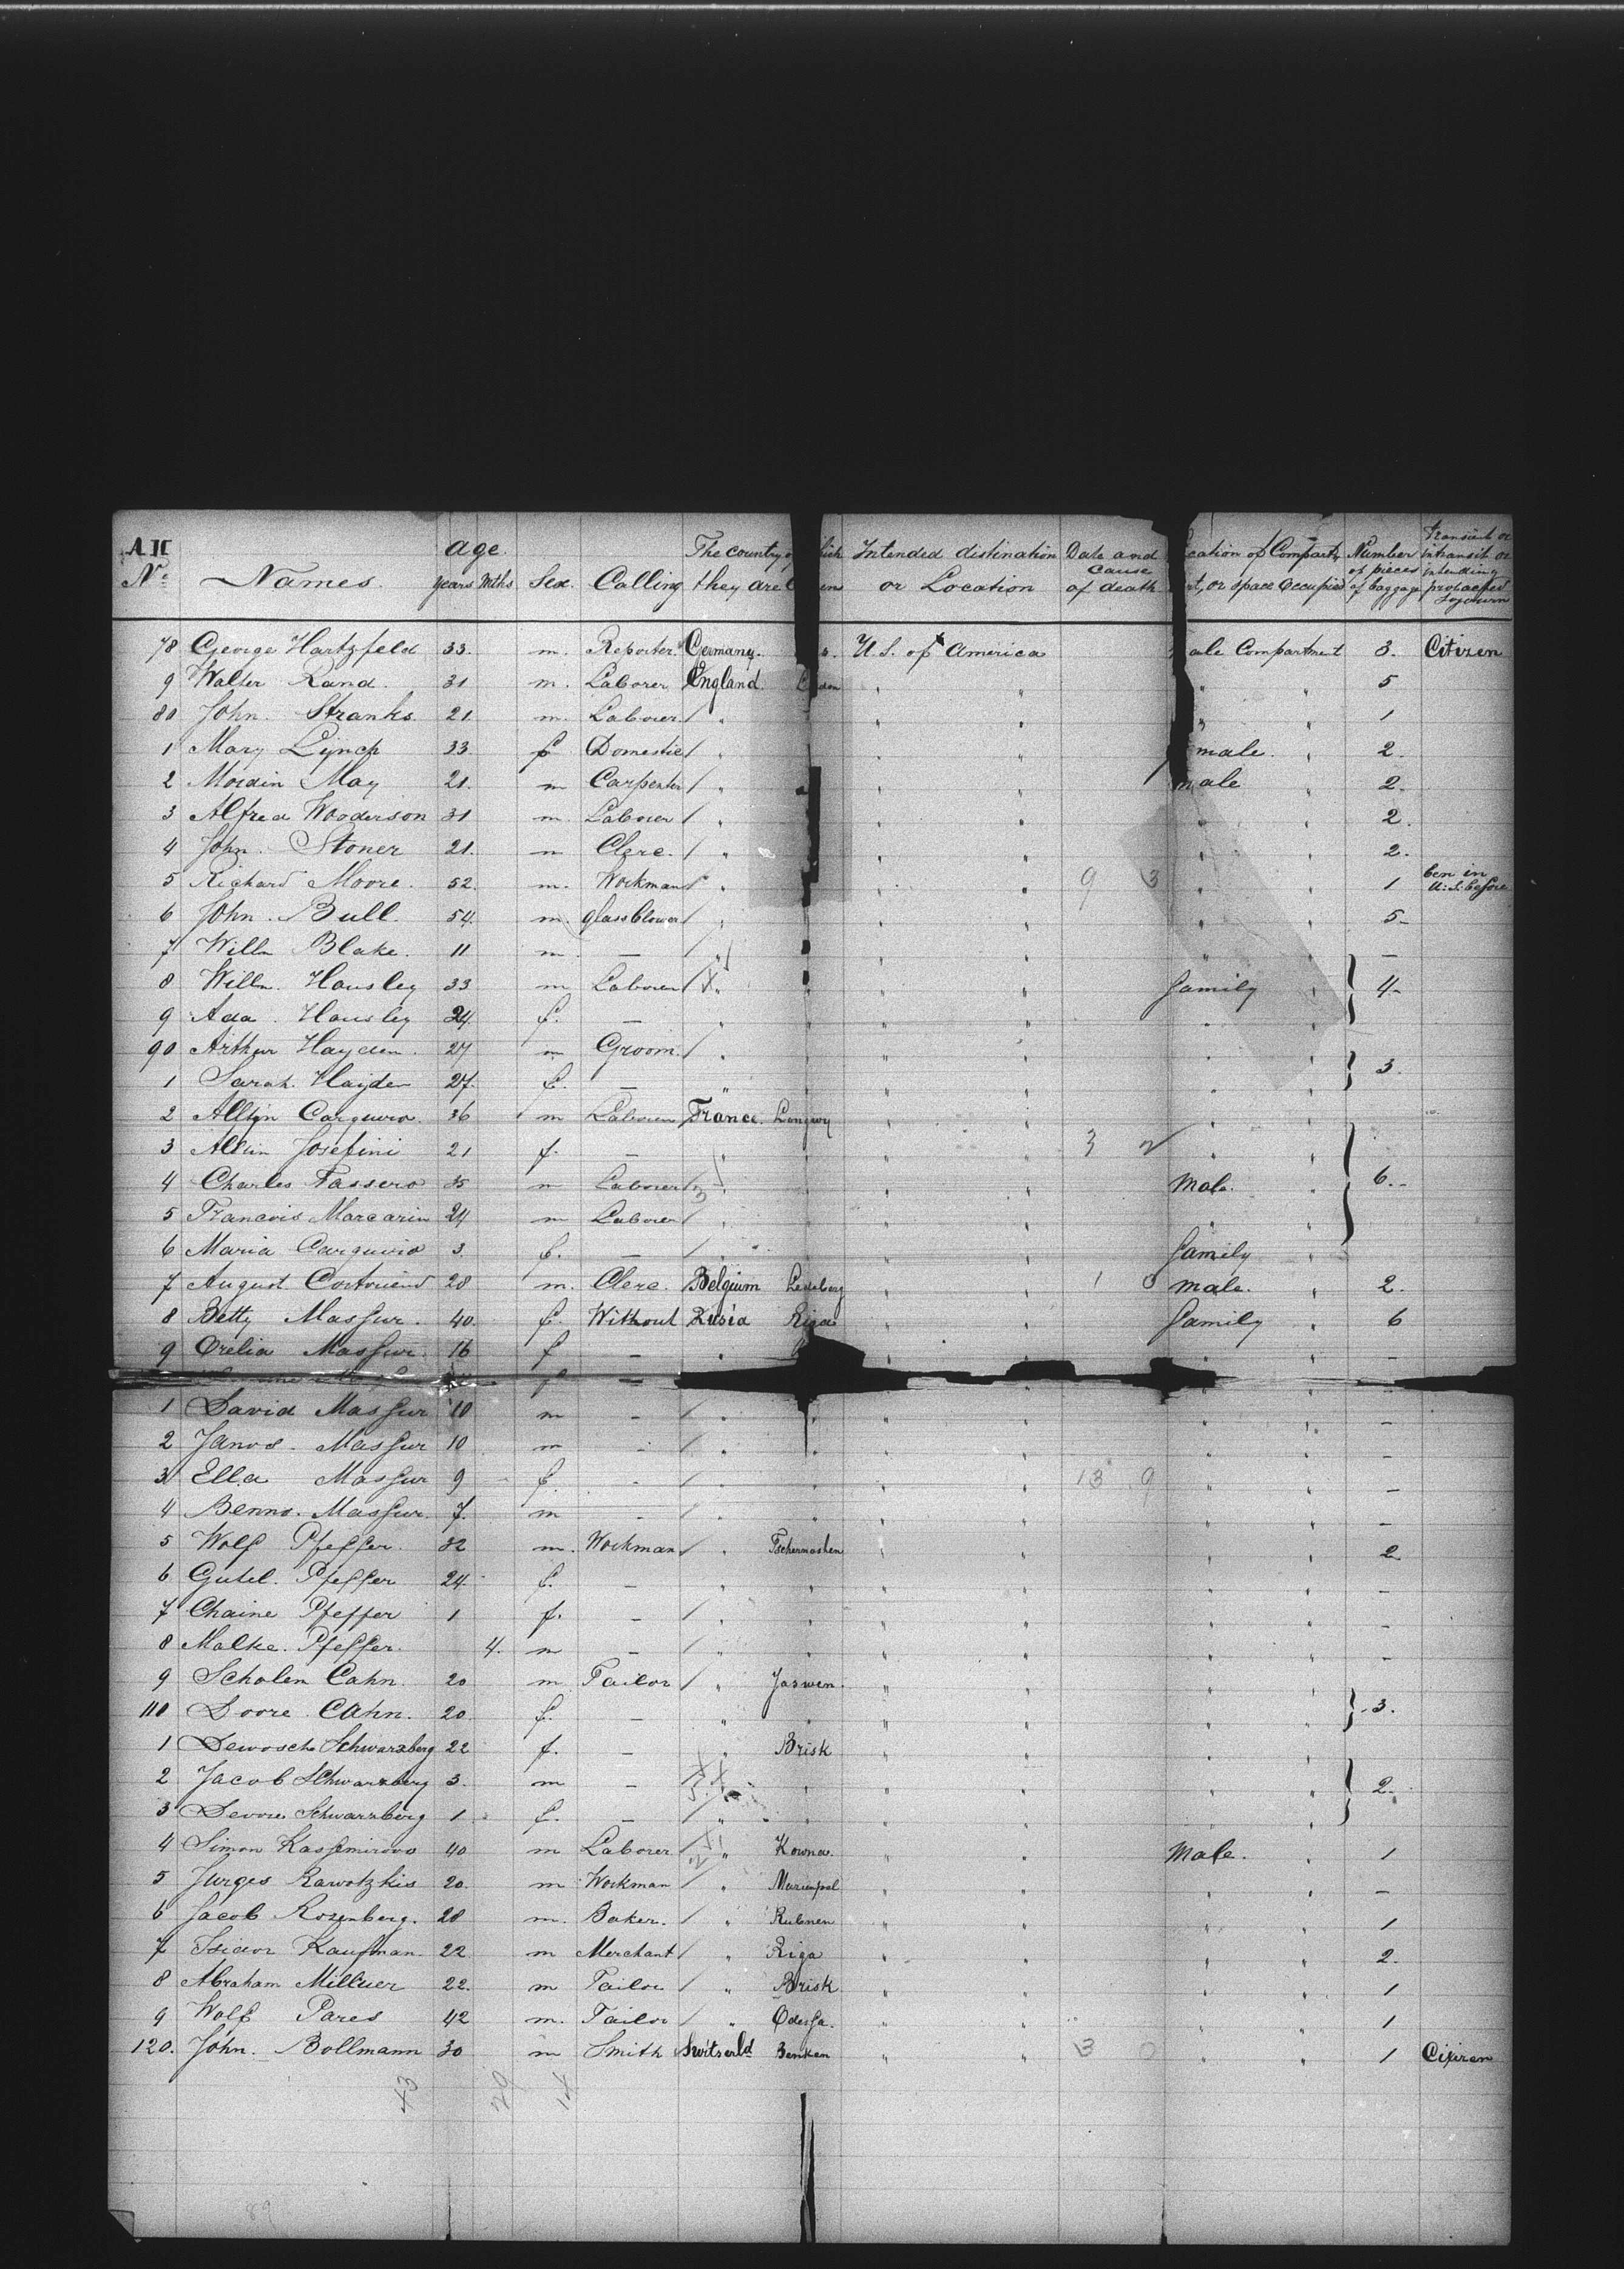 No. Names. age. years Mths Sex. Calling The country of they are Intended distination or Location Date and cause of death cation of Compartment, or space Occupied Number of pieces of baggage Transit or intransit or intending protacted Sojourn
78 George Hartzfeld 33. m. Reporter. Germany. U.S. of America ale Compartment 3. Citizen
9 Walter Rand. 31 m. Laborer England. " " " " 5
80 John. Stranks 21. m. Laborer " " " " 1
1 Mary Lynch 33. f. Domestic " " " male. " 2.
2 Mordin May 21. m Carpenter " " " male " 2.
3 Alfred Wooderson 31 m. Laborer " " " " 2.
4 John. Stoner 21. m Clerc. " " " " " 2.
5 Richard Moore. 52. m. Workman " " " 9 3 " " 1 ben in U.S. before
6 John. Bull. 54. m. glassblower " " " " " 5-
7 Willm Blake. 11 m. — " " " " " —
8 Willm. Housley 33 m Laborer " " " " family " 4-
9 Ada. Housley 24. f. — " " " " " "
90 Arthur Hayden. 27 m Groom. " " " " " "
1 Sarah. Hayden 27. f. — " " " " " " 3.
2 Allign 36 m Laborer France. Longwy " " " "
3 Josefini 21 f. — " " " 3 2 " "
4 Charles Fassero 35 m Laborer " " " " Male. " 6.-
5 Francois Marcarin 24 m Laborer " " " " " "
6 Maria 3. f. — " " " " family "
7 August 28 m. Clerc. Belgium Ledeberg " " 1 0 male. " 2.
8 Betty Massur. 40. f. Without Rusia Riga " " family " 6
9 Orelia Massur. 16 f — " " " " " —
f —
1 David Massur 10 m - " " " " " " -
2 Janos. Massur 10 m - " " " " " " -
3 Ella Massur 9 f. - " " " " 13 9 " " -
4 Benno. Massur. 7. m - " " " " " " -
5 Wolf Pfeffer. 32 m. Workman " Tschermoshen " " " " 2
6 Gutel. Pfeffer 24. f. - " " " " " " -
7 Chaine Pfeffer 1 f. - " " " " " " -
8 Malke. Pfeffer. 4. m - " " " " " " -
9 Scholem Cahn. 20 m Tailor " Jaswen. " " " "
110 Doore Cahn. 20. f. — " " " " " " 3.
1 Dewosche Schwarzberg 22 f. — " Brisk " " " "
2 Jacob Schwarzberg 3. m — " " " " " " 2.
3 Devore Schwarzberg 1. f. — " " " " " "
4 Simon 40 m Laborer " Kowna. " " Male. " 1
5 Jurges Rawotzkis 20. m Workman " Mariempol " " " " -
6 Jacob Rosenberg. 28 m. Baker. " Rubnen " " " " 1
7 Isidor Kaufman. 22 m Merchant " Riga " " " " 2.
8 Abraham Milluer 22. m Tailor " Brisk " " " " 1
9 Wolf Pares 42 m. Tailor " Odessa. " " " " 1
120. John. Bollmann 30 m Smith Switserld Benken " " 3 0 " " 1 Citizen
43 29 14
89